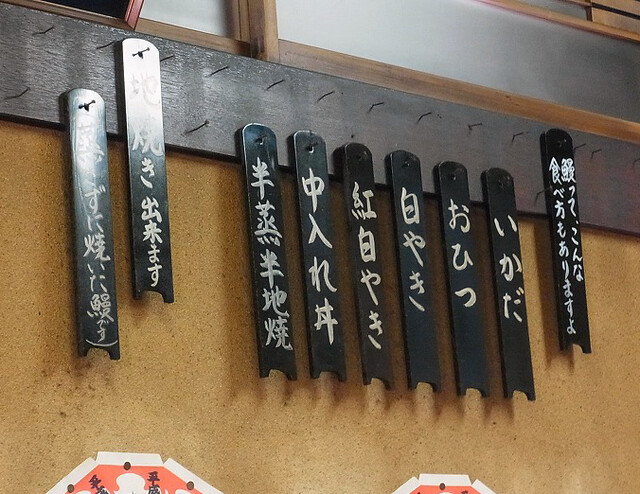 鰻って、こんな
食べ方もありますよ
いかだ
おひつ
白やき
紅白やき
中入れ丼
半蒸半地焼
地焼き出来ます
ずに焼いた鰻です)
平成